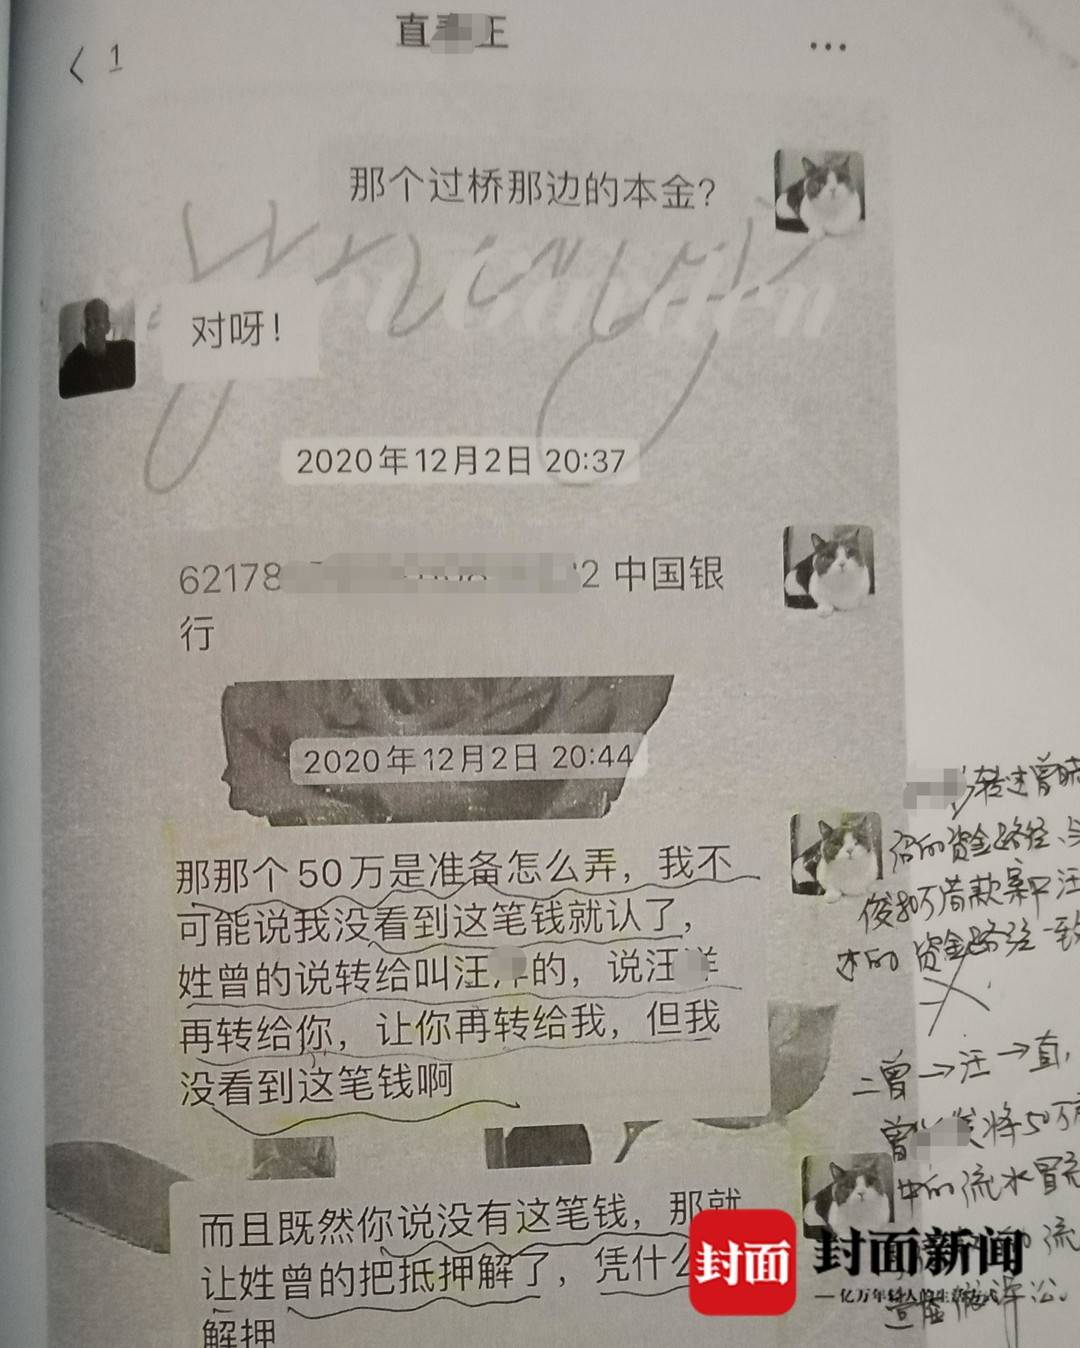 直
1
那个过桥那边的本金？
对呀！
2020年12月2日 20:37
62178 2 中国银
行
2020年12月2日 20:44
那那个50万是准备怎么弄，我不
可能说我没看到这笔钱就认了，
姓曾的说转给叫汪 的，说汪
再转给你，让你再转给我，但我
没看到这笔钱啊
而且既然你说没有这笔钱，那就
让姓曾的把抵押解了，凭什么
解押
转过曾
的资金路径、
俊 借款案中汪
的资金路径一致
二曾→汪→直，
曾 将50万
中的流水冒充
流
封面
封面新闻
亿万年轻人的生活方式